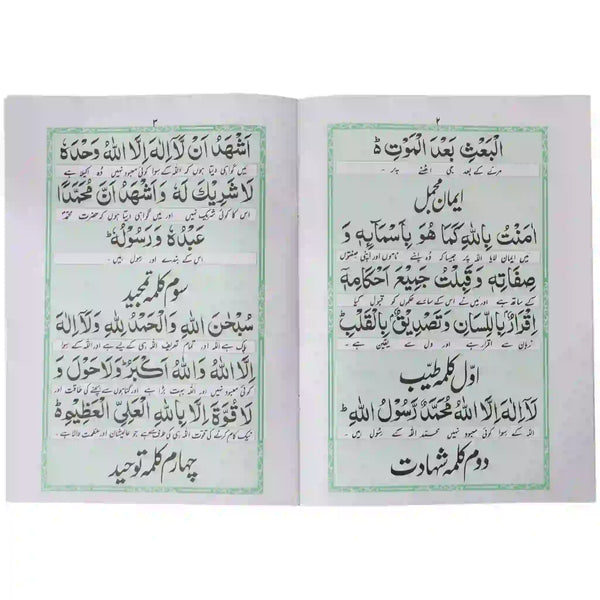 ٢
الْبَعْثِ بَعْدَ الْمَوْتِ ط
مرنے کے بعد جی اٹھنے پر ۔
ایمان مجمل
اٰمَنْتُ بِاللّٰهِ كَمَا هُوَ بِاَسْمَآئِهٖ وَ
میں ایمان لایا اللہ پر جیسا کہ وہ اپنے ناموں اور اپنی صفتوں
صِفَاتِهٖ وَقَبِلْتُ جَمِيْعَ اَحْكَامِهٖ
کے ساتھ ہے اور میں نے اس کے سارے حکموں کو قبول کیا
اِقْرَارٌۢ بِاللِّسَانِ وَتَصْدِيْقٌۢ بِالْقَلْبِ ط
زبان سے اقرار ہے اور دل سے یقین ہے ۔
اوّل کلمہ طیّب
لَآ اِلٰهَ اِلَّا اللّٰهُ مُحَمَّدٌ رَّسُوْلُ اللّٰهِ ط
اللہ کے سوا کوئی معبود نہیں محمد اللہ کے رسول ہیں ۔
دوم کلمہ شہادت
٣
اَشْهَدُ اَنْ لَّآ اِلٰهَ اِلَّا اللّٰهُ وَحْدَهٗ
میں گواہی دیتا ہوں کہ اللہ کے سوا کوئی معبود نہیں وہ اکیلا ہے
لَا شَرِيْكَ لَهٗ وَاَشْهَدُ اَنَّ مُحَمَّدًا
اس کا کوئی شریک نہیں اور میں گواہی دیتا ہوں کہ حضرت محمدؐ
عَبْدُهٗ وَرَسُوْلُهٗ ط
اس کے بندے اور رسول ہیں ۔
سوم کلمہ تمجید
سُبْحٰنَ اللّٰهِ وَالْحَمْدُ لِلّٰهِ وَلَآ اِلٰهَ
پاک ہے اللہ اور تمام تعریف اللہ ہی کے لیے ہے اور اللہ کے سوا
اِلَّا اللّٰهُ وَاللّٰهُ اَكْبَرُ ط وَلَا حَوْلَ وَ
کوئی معبود نہیں اور اللہ بہت بڑا ہے اور گناہوں سے بچنے کی طاقت اور
لَا قُوَّةَ اِلَّا بِاللّٰهِ الْعَلِيِّ الْعَظِيْمِ ط
نیک کام کرنے کی قوت اللہ ہی کی طرف سے ہے جو عالیشان اور عظمت والا ہے ۔
چہارم کلمہ توحید